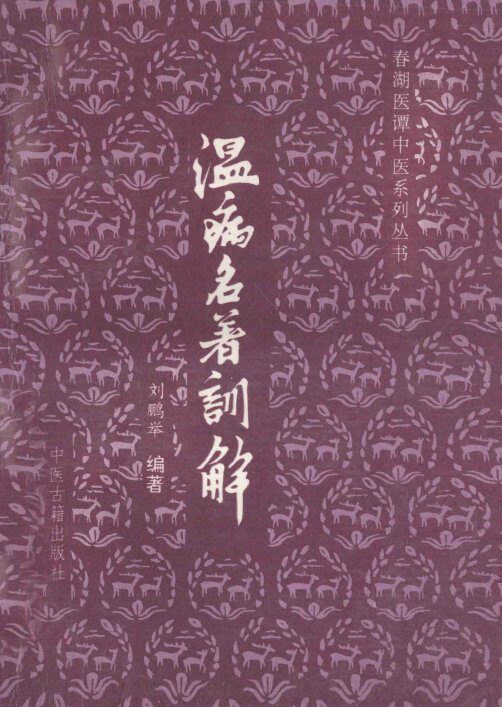 春湖医谭中医系列丛书
温病名著訓解
刘鹏举 编著
中医古籍出版社